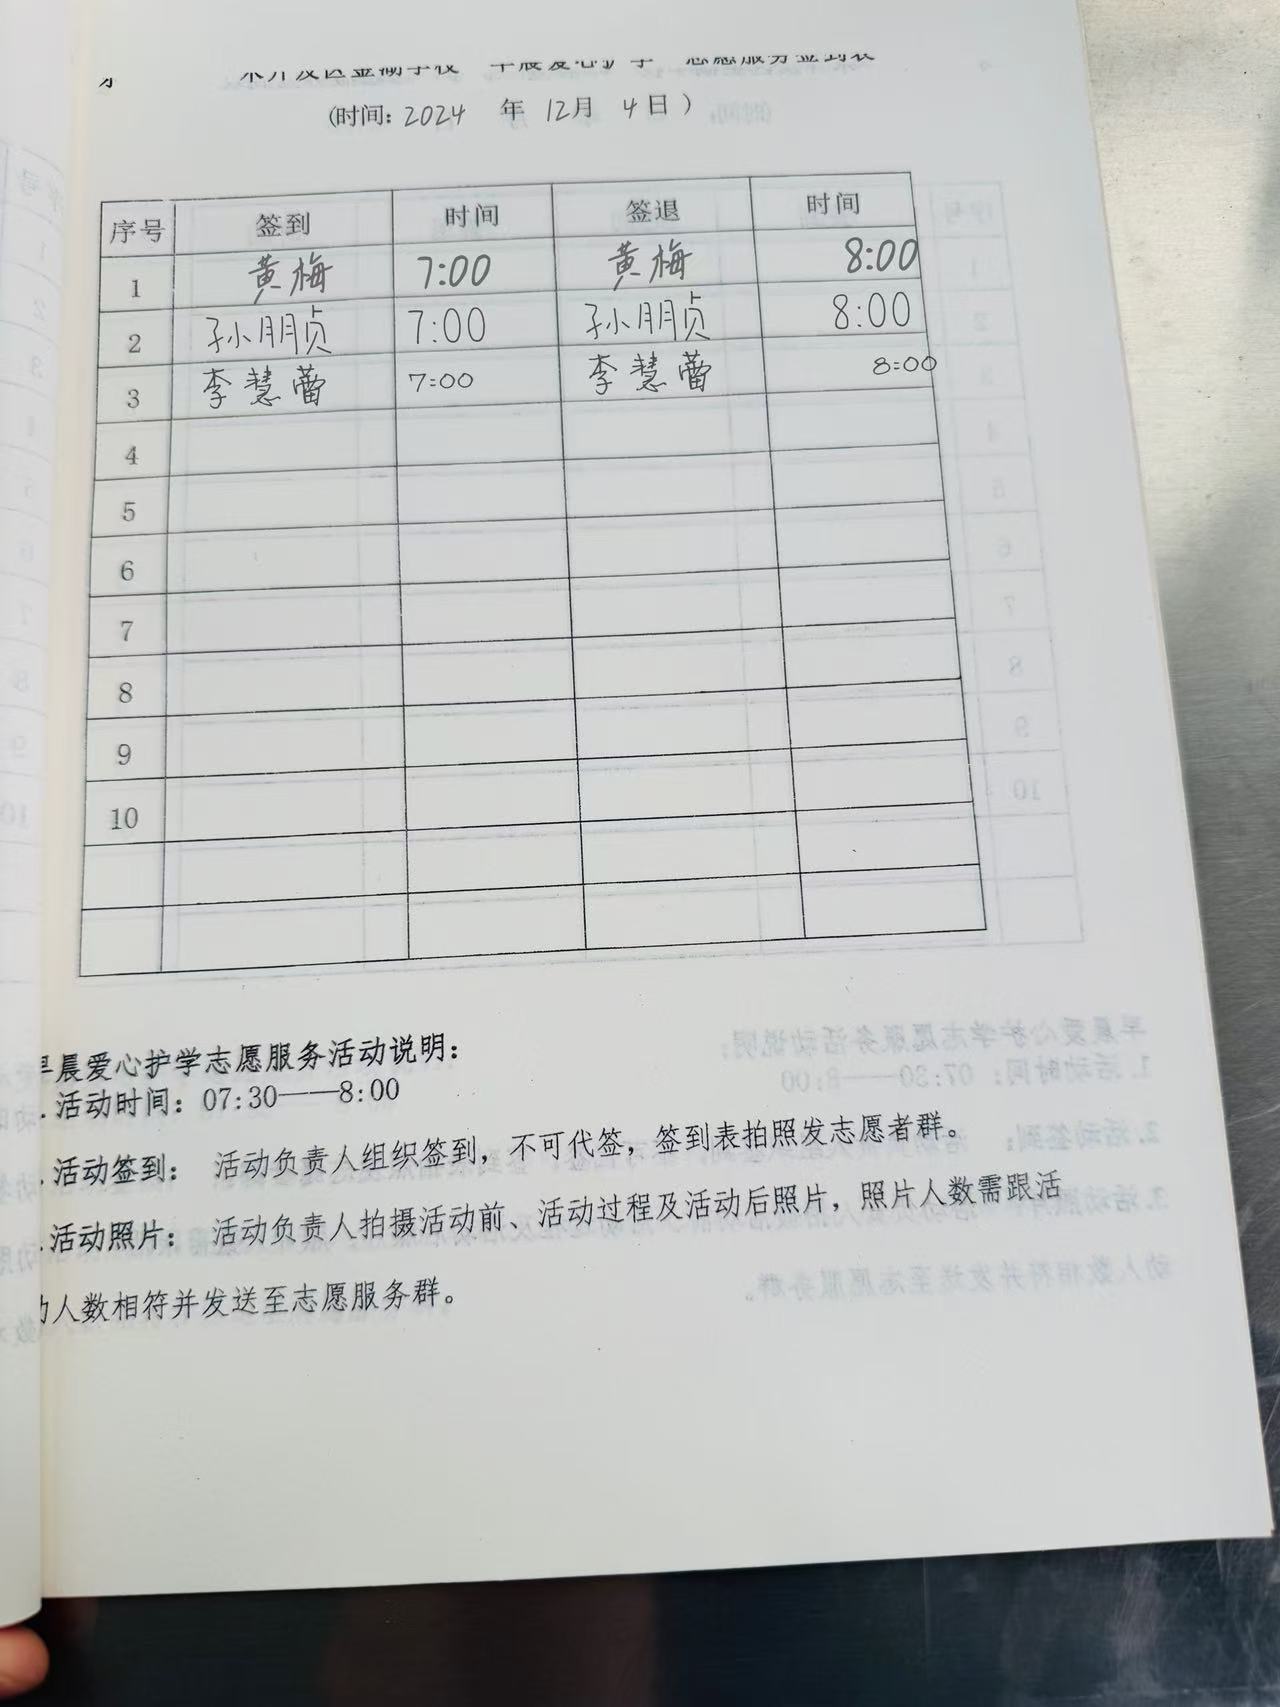 早晨爱心护学 志愿服务签到表
(时间: 2024 年 12月 4日 )
序号 签到 时间 签退 时间
1 黄梅 7:00 黄梅 8:00
2 孙朋贞 7:00 孙朋贞 8:00
3 李慧蕾 7:00 李慧蕾 8:00
4
5
6
7
8
9
10
早晨爱心护学志愿服务活动说明:
.活动时间: 07:30——8:00
.活动签到: 活动负责人组织签到, 不可代签, 签到表拍照发志愿者群。
.活动照片: 活动负责人拍摄活动前、活动过程及活动后照片, 照片人数需跟活
动人数相符并发送至志愿服务群。